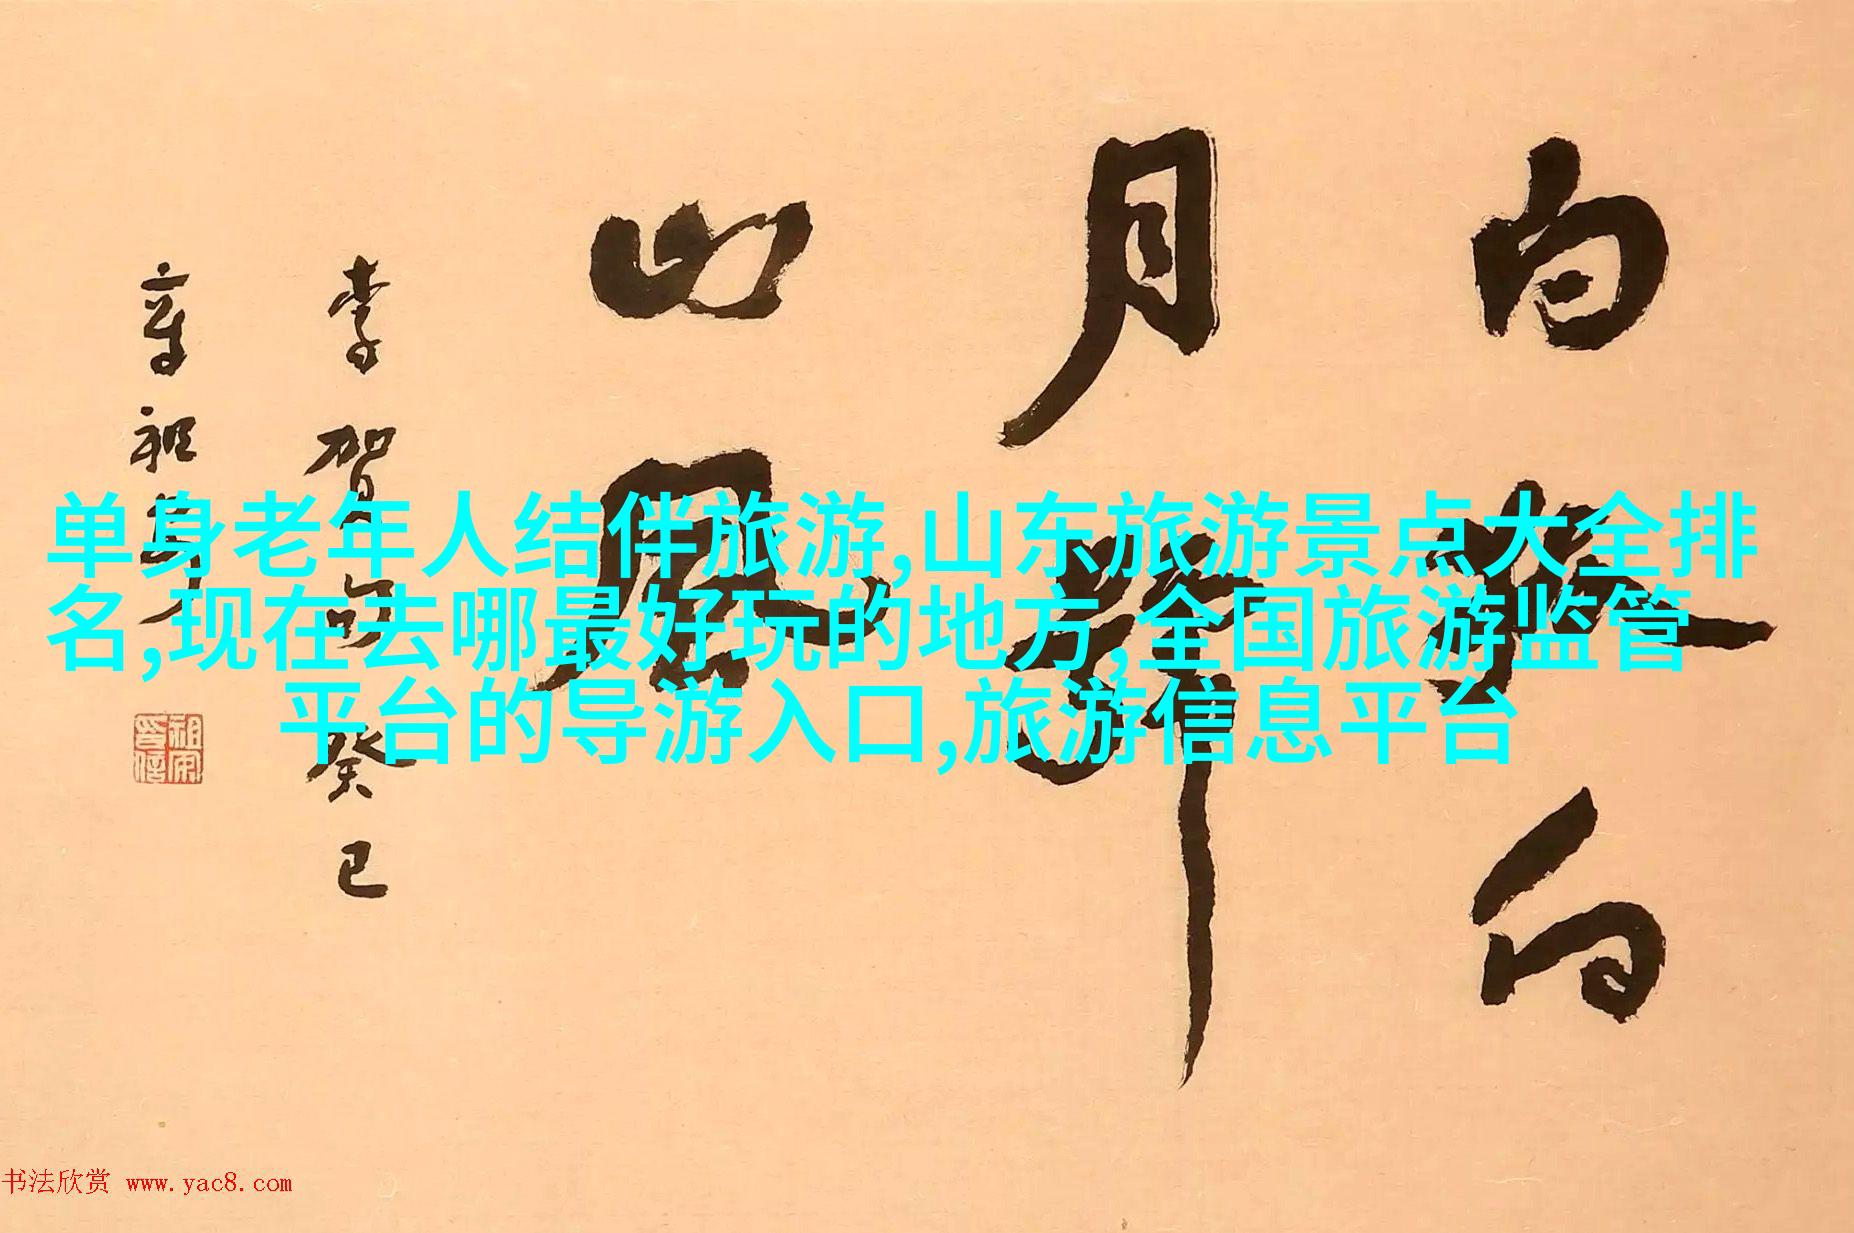 白狐向
月號
山風
李賀句癸巳
章祖安
祖安印信
单身老年人结伴旅游,山东旅游景点大全排
名,现在去哪最好玩的地方,全国旅游监管
平台的导游入口,旅游信息平台
书法欣赏 www.yac8.com